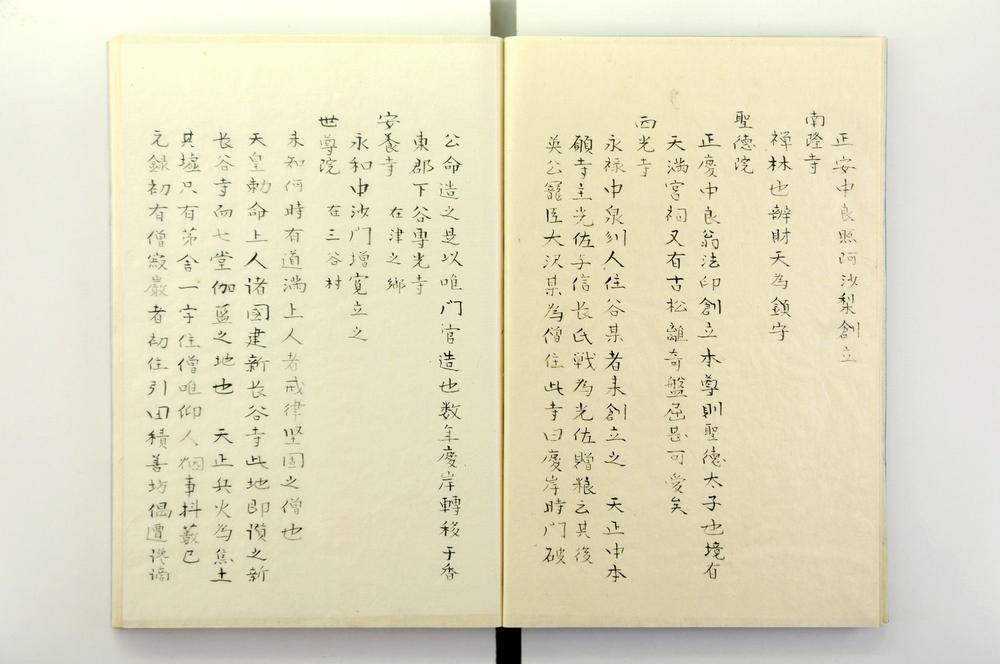 正安中良照阿沙梨創立
南隆寺
禅林也辨財天為鎮守
聖德院
正慶中良翁法印創立本尊則聖德太子也境有
天満宮祠又有古松離奇盤屈甚可愛矣
西光寺
永禄中泉州人住谷某者来創立之　天正中本
願寺主光佐与信長氏戦為光佐贈粮云其後
英公寵臣大沢某為僧住此寺曰慶岸時門破
公命造之是以唯門官造也数年慶岸轉移于香
東郡下谷專光寺
安養寺　在津之鄉
永和中沙門增寬立之
世尊院　在三谷村
未知何時有道満上人者戒律坚固之僧也
天皇勅命上人諸國建新長谷寺此地即湏之新
長谷寺而七堂伽藍之地也　天正兵火為焦土
其墟只有茅舎一宇住僧唯仰人
事抖藪已
元録初有僧寂嚴者初住引田積善坊偶遭讒謫